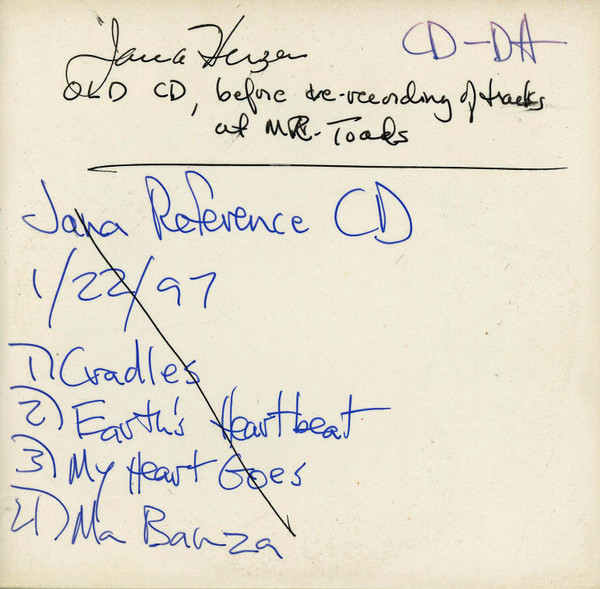 Jana Herzen
CD-DA
OLD CD, before re-recording of tracks
at MR. Toads
Jana Reference CD
1/22/97
1) Cradles
2) Earth's Heartbeat
3) My Heart Goes
4) Ma Banza